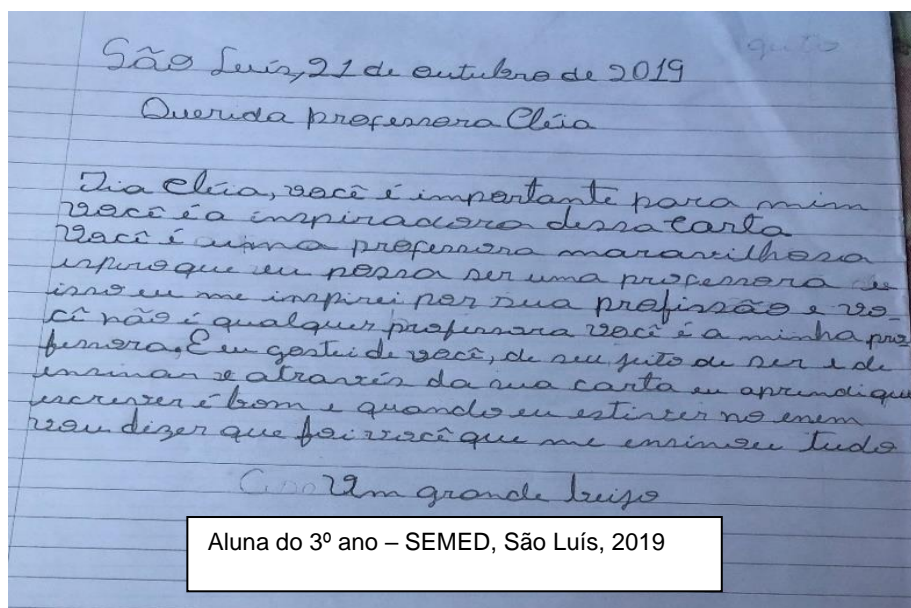 São Luís, 21 de outubro de 2019
Querida professora Cléia
Tia Cléia, você é importante para mim
você é a inspiradora dessa carta
Você é uma professora maravilhosa
espiro que eu possa ser uma professora
isso eu me inspirei por sua profissão e vo-
cê não é qualquer professora você é a minha pro
fessora. E eu gostei de você, de seu juto de ser e de
ensinar e através da sua carta eu aprendi que
escrever é bom e quando eu estiver no enem
vou dizer que foi você que me ensinou tudo
Um grande beijo
Aluna do 3º ano – SEMED, São Luís, 2019